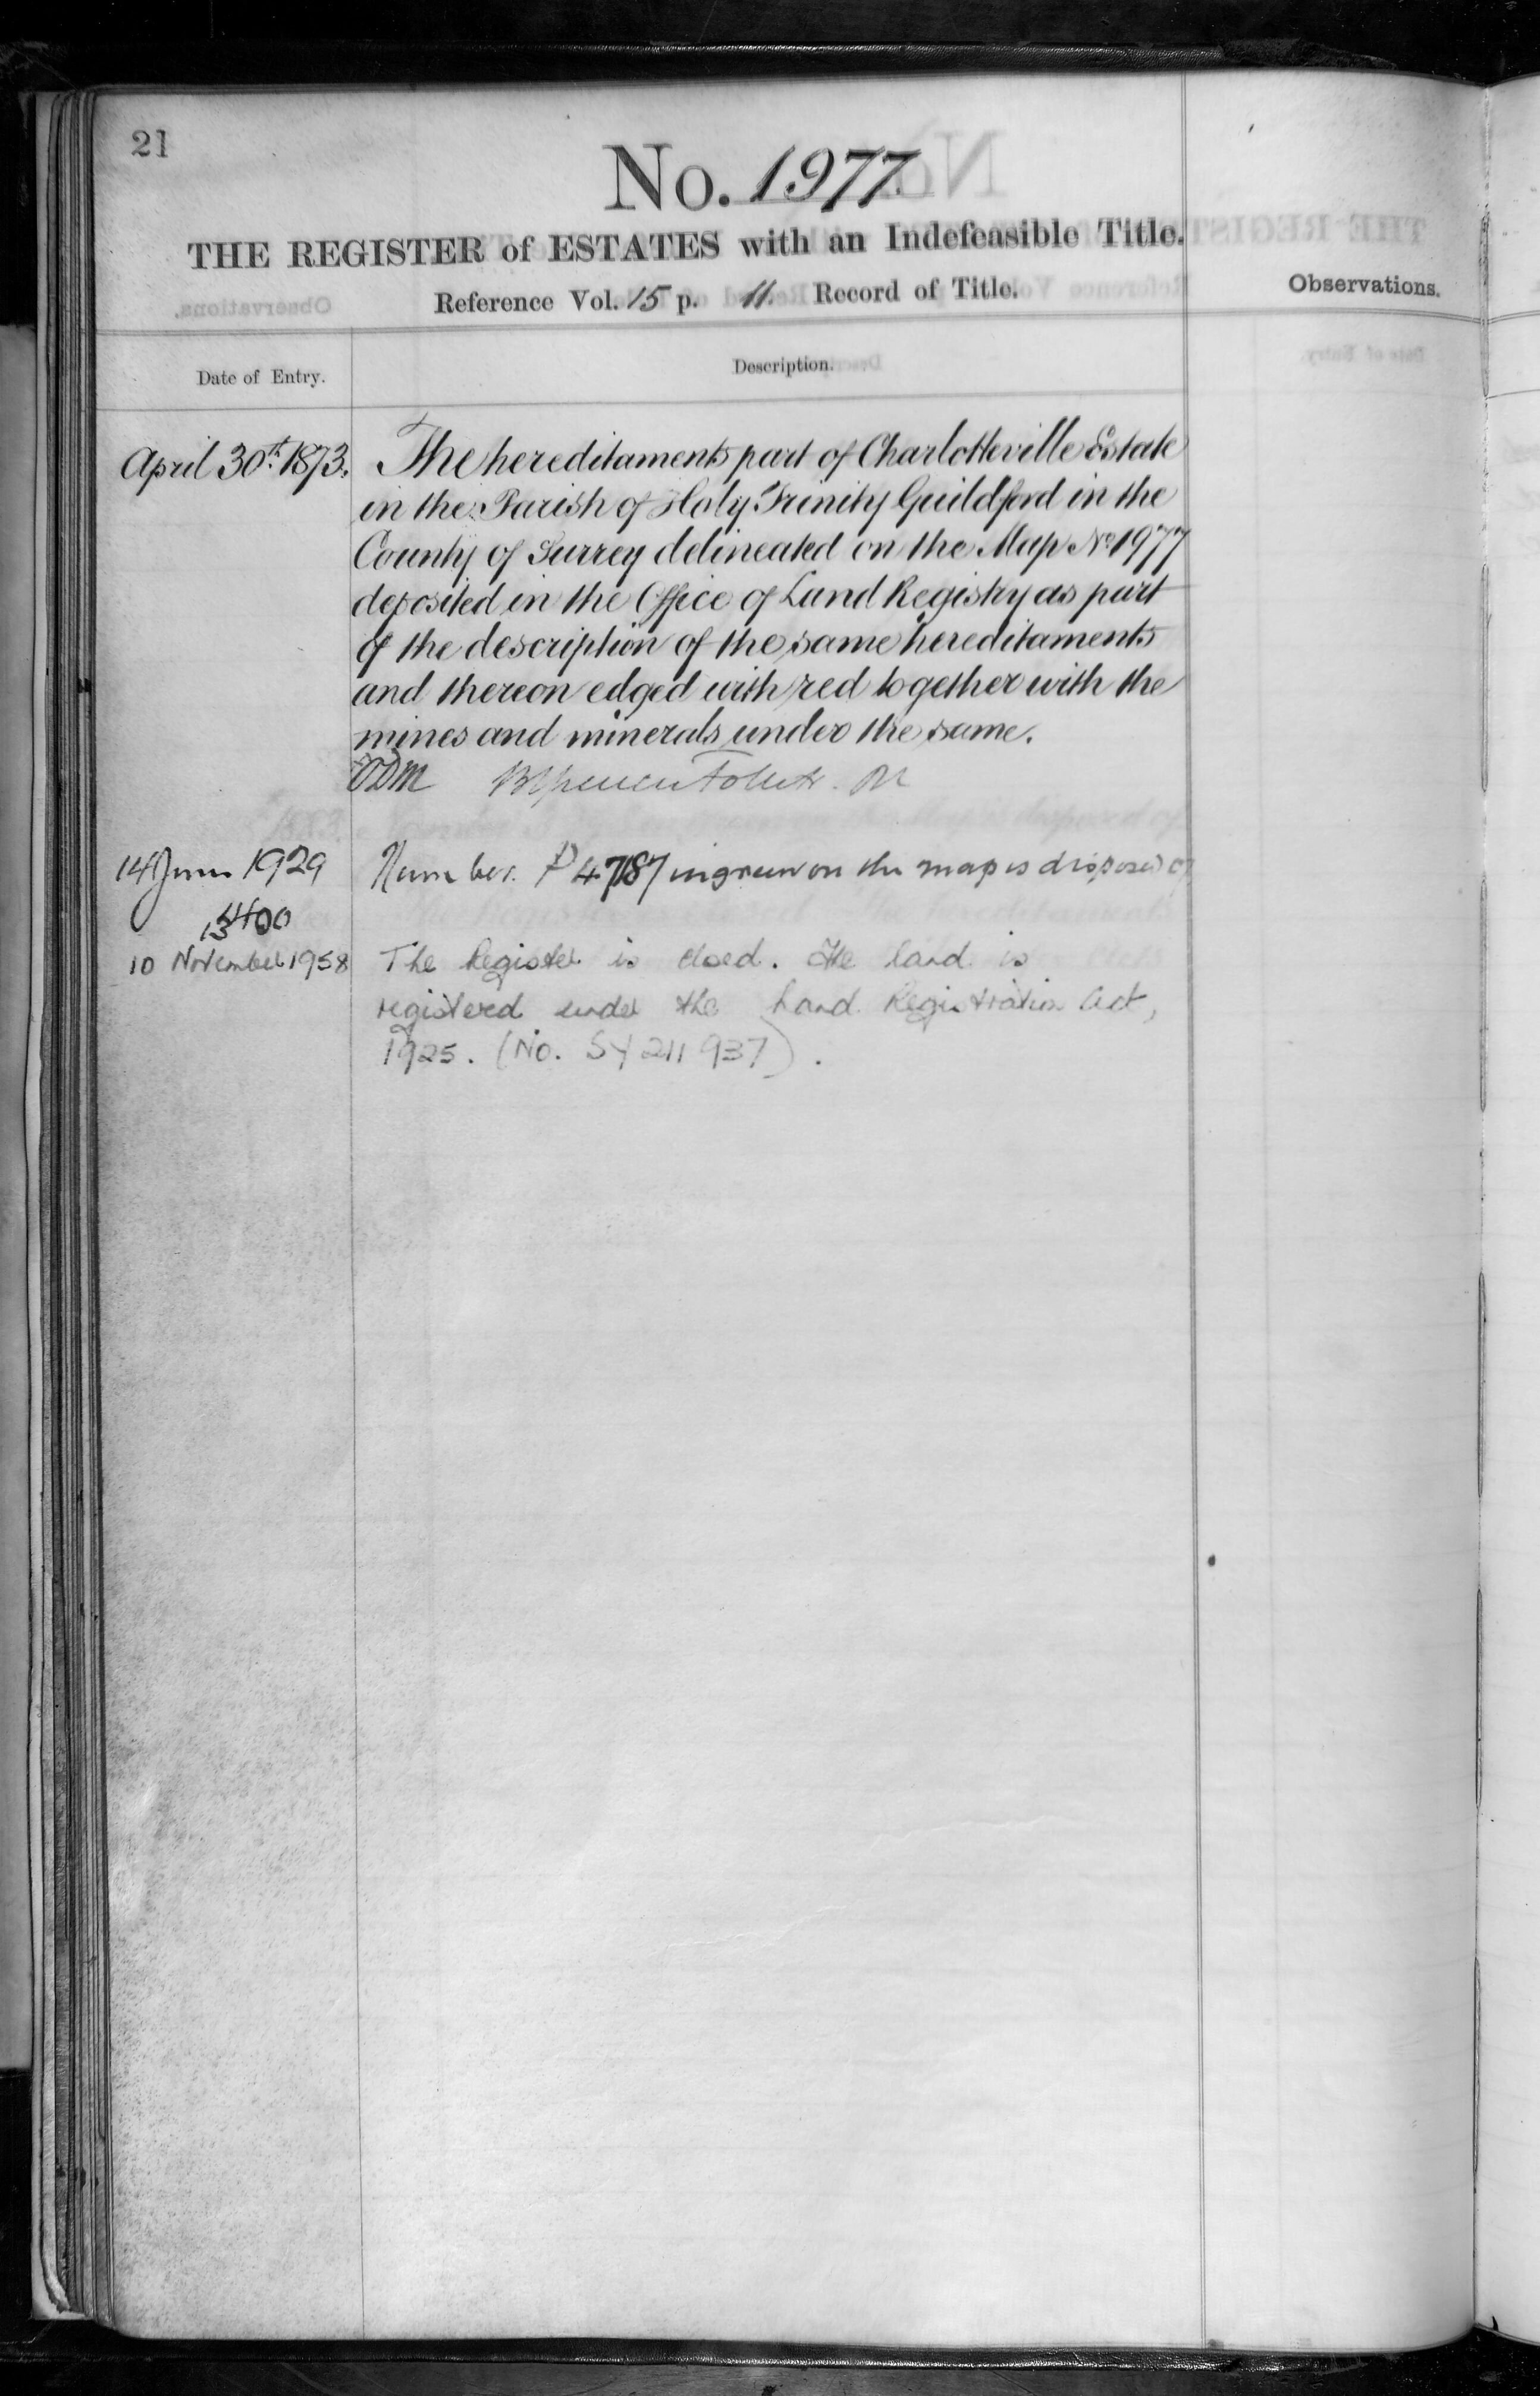 21
No. 1977
THE REGISTER of ESTATES with an Indefeasible Title.
Reference Vol. 15 p. 11. Record of Title.
Observations.
Date of Entry.
Description.
April 30th. 1873.
The hereditaments part of Charlotteville Estate
in the Parish of Holy Trinity Guildford in the
County of Surrey delineated on the Map No 1977
deposited in the Office of Land Registry as part
of the description of the same hereditaments
and thereon edged with red together with the
mines and minerals under the same.
14 June 1929
Number P47187 in green on the map is disposed of
10 November 1958
The Register is closed. The land is
registered under the Land Registration Act,
1925. (No. SY 211 937).